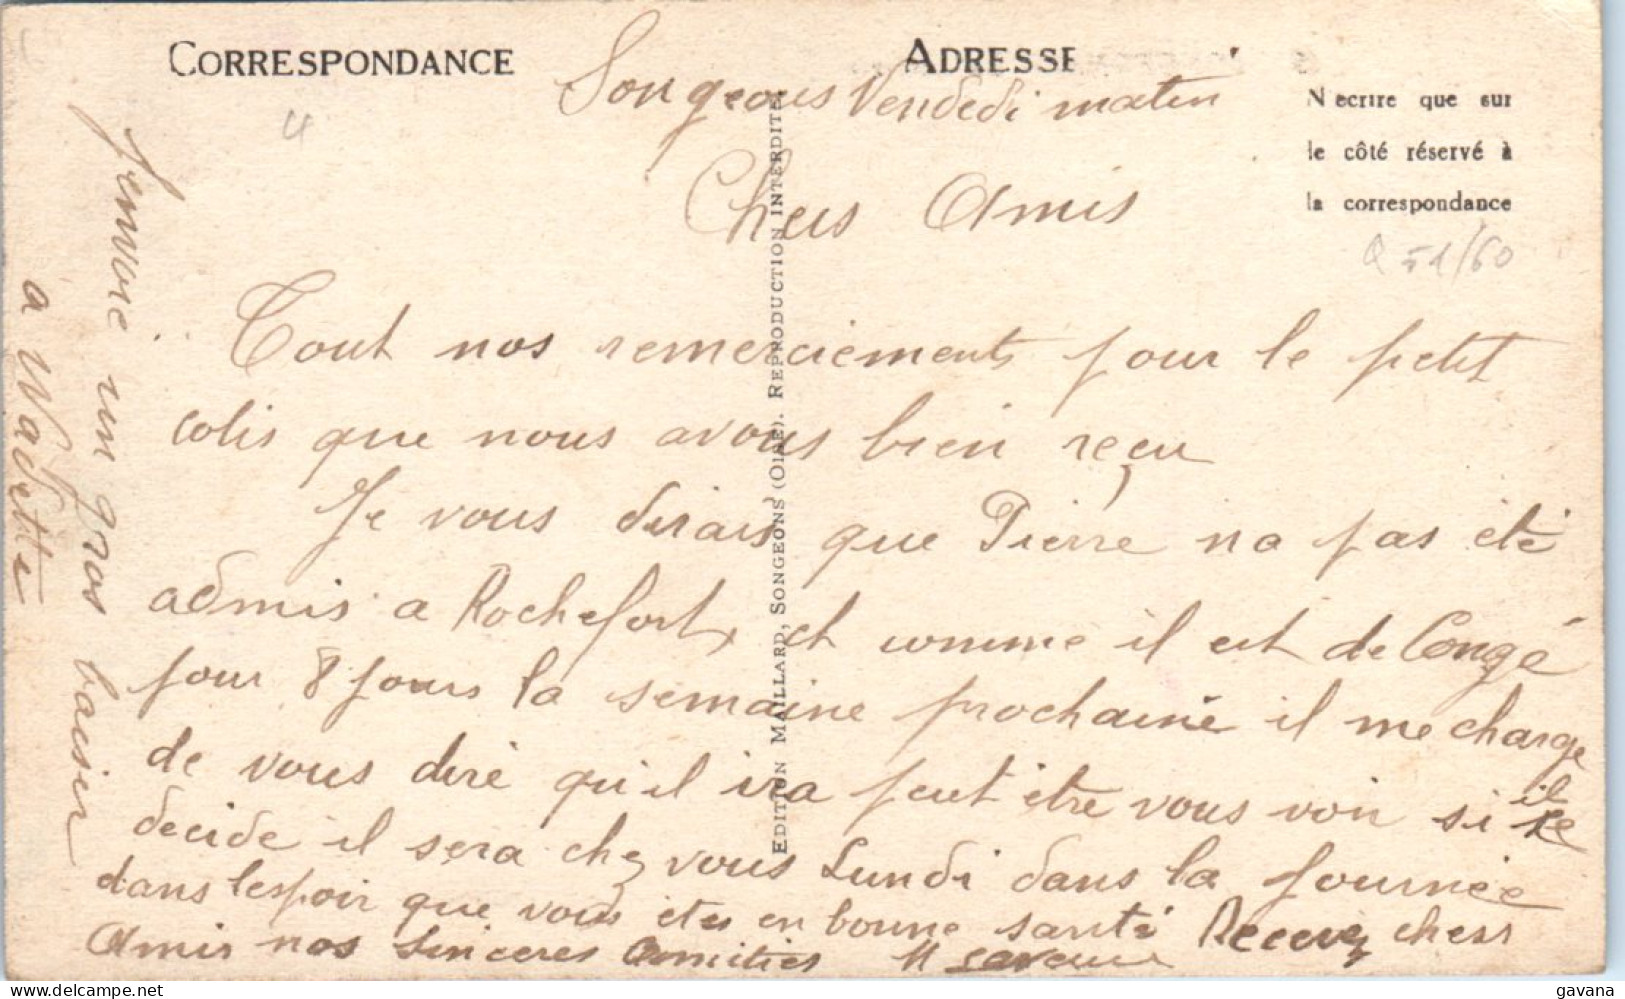 CORRESPONDANCE
ADRESSE
N'ecrire que sur
le côté réservé à
la correspondance
Songeons Vendedi matin
Chers Amis
Tout nos remerciements pour le petit
colis que nous avons bien reçu
Je vous dirais que Pierre na pas été
admis a Rochefort, et comme il est de Congé
pour 8 jours la semaine prochaine il me charge
de vous dire qu'il ira peut être vous voir si il se
decide il sera chez vous Lundi dans la journée
dans lespoir que vous etes en bonne santé Recevez chers
Amis nos sinceres Amitiés
Jenvoie un gros baiser
a Nadette
EDITION MAILLARD, SONGEONS (OISE). REPRODUCTION INTERDITE.
4
51/60
gavana